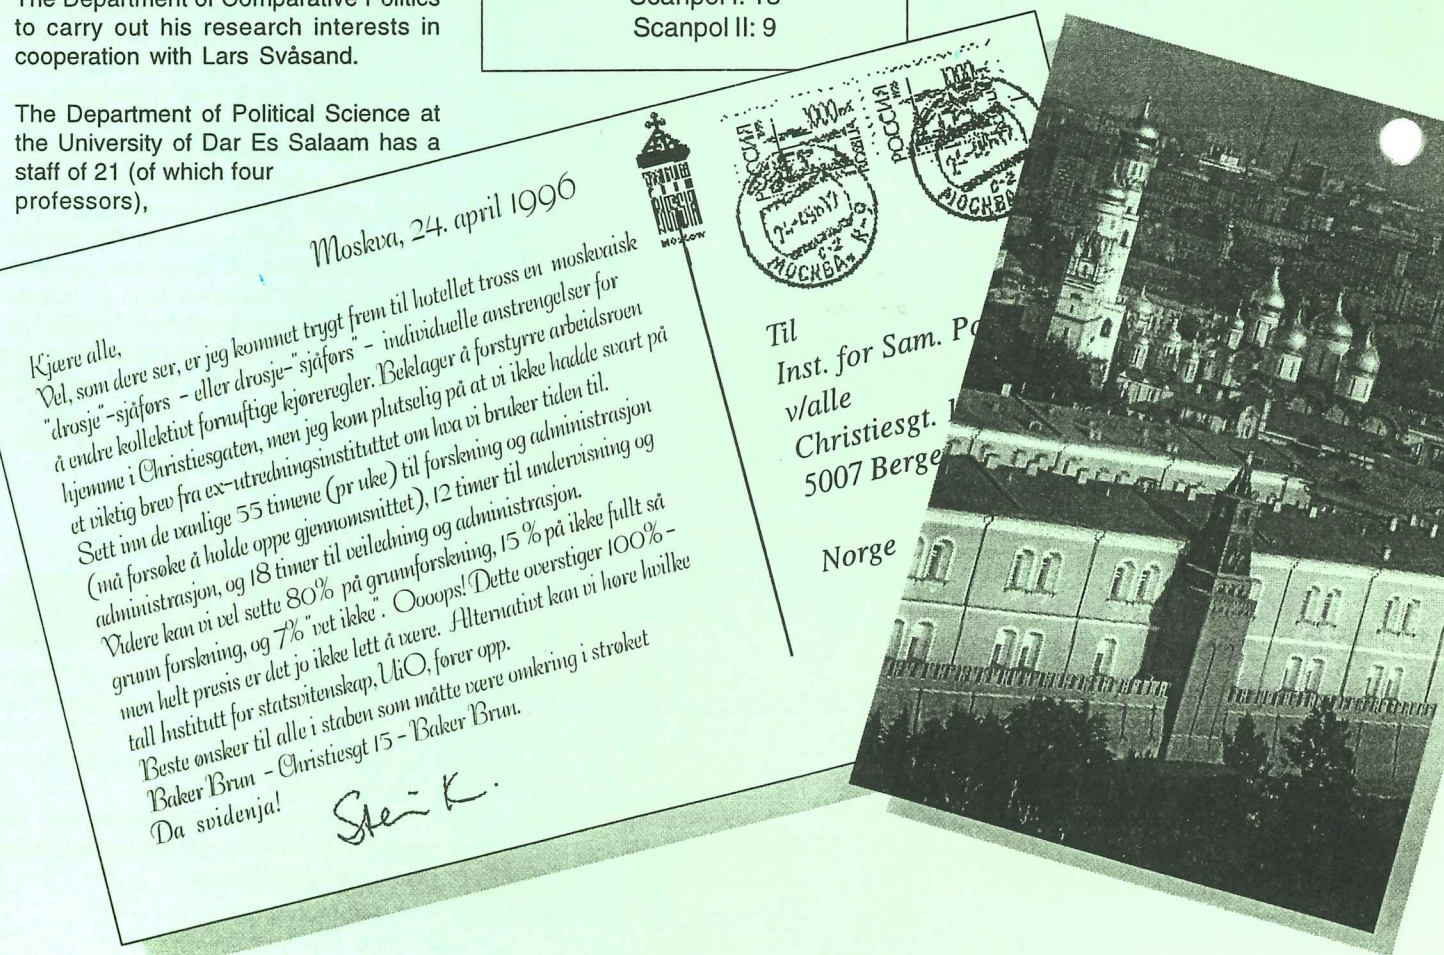 to carry out his research interests in
cooperation with Lars Svåsand.
The Department of Political Science at
the University of Dar Es Salaam has a
staff of 21 (of which four
professors),
Scanpol II: 9
Moskva, 24. april 1996
Kjære alle,
Vel, som dere ser, er jeg kommet trygt frem til hotellet tross en moskvaisk
"drosje"-sjåførs - eller drosje-"sjåførs" - individuelle anstrengelser for
å endre kollektivt fornuftige kjøreregler. Beklager å forstyrre arbeidsroen
hjemme i Christiesgaten, men jeg kom plutselig på at vi ikke hadde svart på
et viktig brev fra ex-utredningsinstituttet om hva vi bruker tiden til.
Sett inn de vanlige 55 timene (pr uke) til forskning og administrasjon
(må forsøke å holde oppe gjennomsnittet), 12 timer til undervisning og
administrasjon, og 18 timer til veiledning og administrasjon.
Videre kan vi vel sette 80% på grunnforskning, 15 % på ikke fullt så
grunn forskning, og 7% "vet ikke". Oooops! Dette overstiger 100% -
men helt presis er det jo ikke lett å være. Alternativt kan vi høre hvilke
tall Institutt for statsvitenskap, UiO, fører opp.
Beste ønsker til alle i staben som måtte være omkring i strøket
Baker Brun - Christiesgt 15 - Baker Brun.
Da svidenja!
Stein K.
MOSCOW
РОССИЯ
МОСКВА
РОССИЯ
МОСКВА
Til
Inst. for Sam. Po
v/alle
Christiesgt.
5007 Berge
Norge